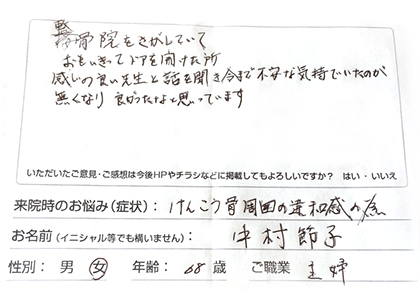 整骨院をさがしていて
おもいきってドアを開けた所
感じの良い先生と話を聞き今まで不安な気持でいたのが
無くなり良かったなと思っています
いただいたご意見・ご感想は今後HPやチラシなどに掲載してもよろしいですか? はい・いいえ
来院時のお悩み(症状): けんこう骨周囲の違和感の為
お名前(イニシャル等でも構いません): 中村節子
性別: 男 女 年齢: 68 歳 ご職業 主婦